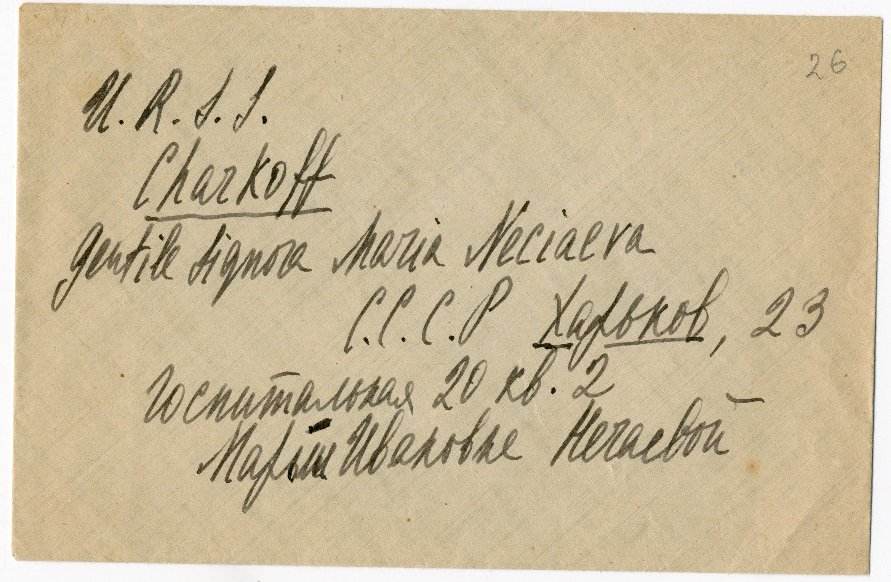 26
U.R.S.S.
Charkoff
Gentile signora Maria Neciaeva
С.С.С.Р Харьков, 23
Госпитальная 20 кв. 2
Марии Ивановне Нечаевой